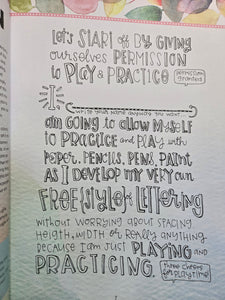 Let's START off By GIVING
ourselves PERMISSION
to PLAY & PRACTICE
permission
granted!
I,
write your name anyway you want
am GOING to allow MYSELF
to PRACTICE and PLAY with
PAPER, PENCILS, PENS, PAINT
AS I DEVELOP MY VERY OWN
FREE{style} LETTERING
WITHOUT WORRYING ABOUT SPACING
HEIGTH, WIDTH OR REALLY ANYTHING
BECAUSE I AM JUST PLAYING AND
PRACTICING.
Three cheers
for PLAYTIME!